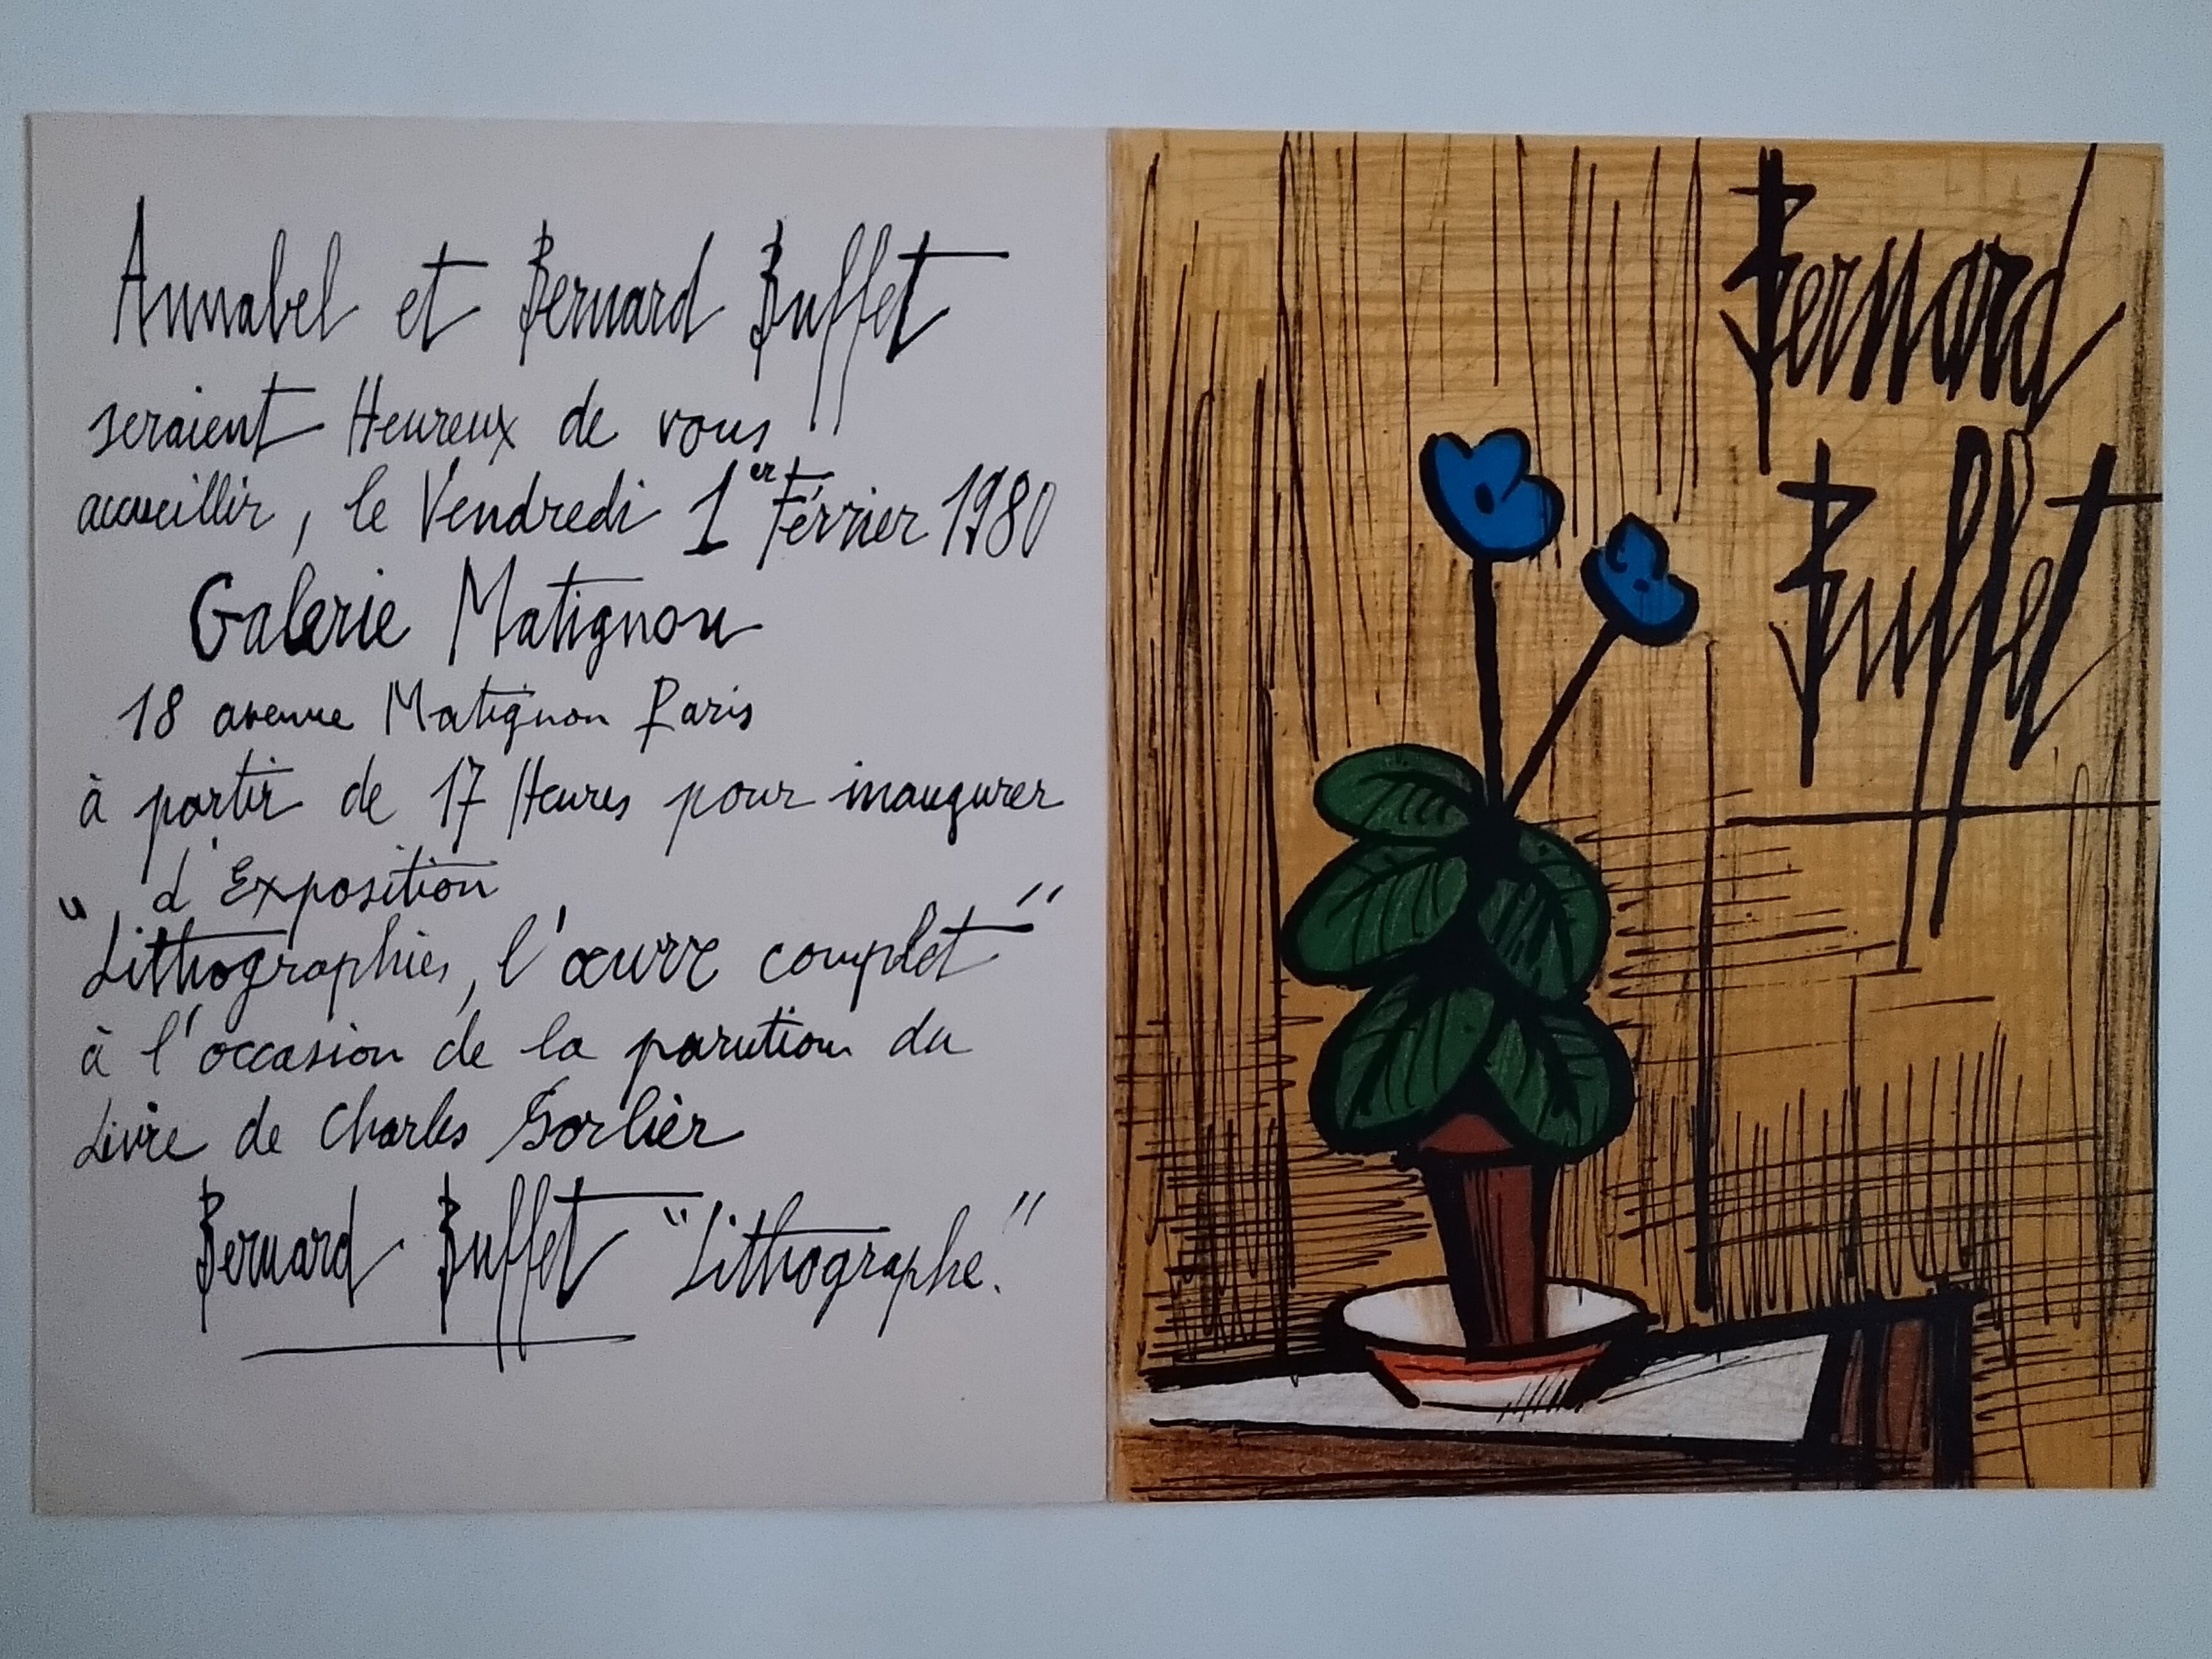 Annabel et Bernard Buffet
seraient Heureux de vous
accueillir, le Vendredi 1er Février 1980
Galerie Matignon
18 avenue Matignon Paris
à partir de 17 Heures pour inaugurer
d'Exposition
"Lithographies, l'œuvre complet"
à l'occasion de la parution du
Livre de Charles Sorlier
Bernard Buffet "Lithographe."
Bernard
Buffet